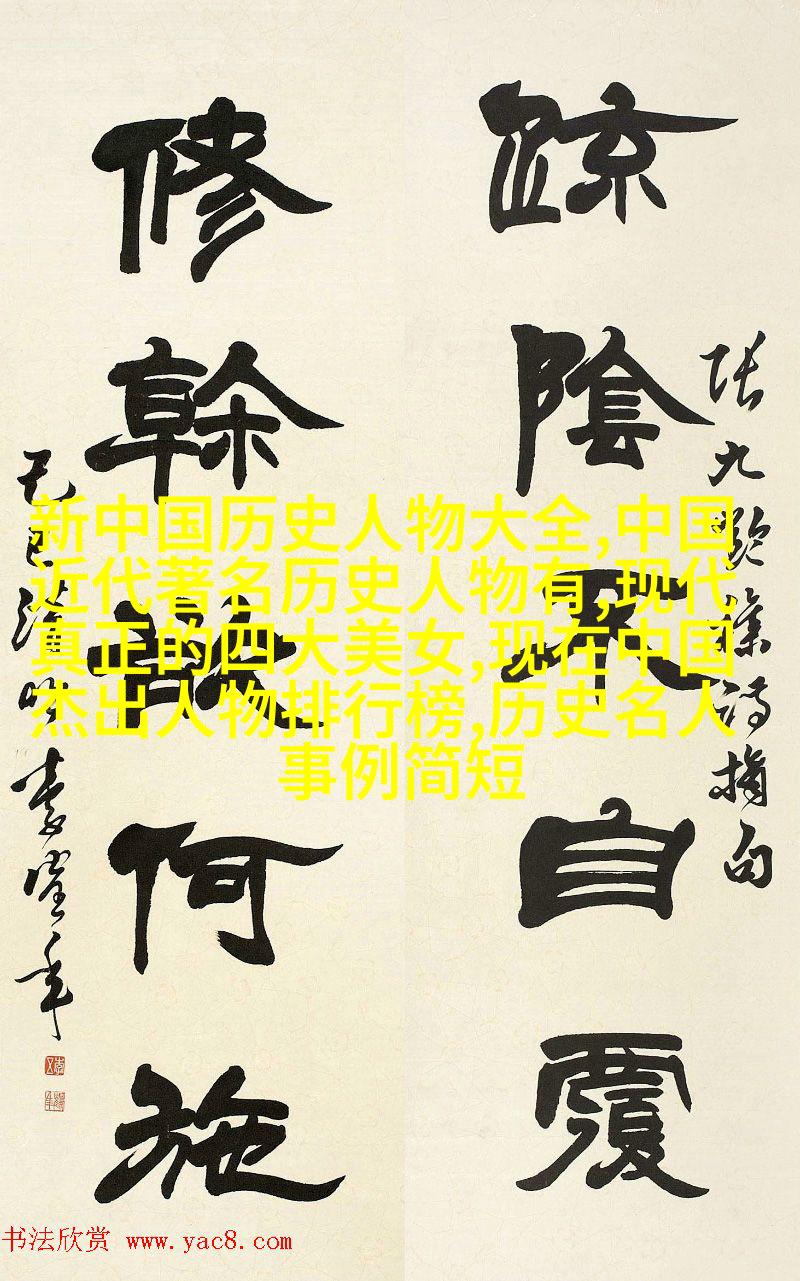 疏陰不自覆
張九齡雜詩摘句
修幹欲何施
新中国历史人物大全,中国
近代著名历史人物有,现代
真正的四大美女,现在中国
杰出人物排行榜,历史名人
事例简短
书法欣赏 www.yac8.com